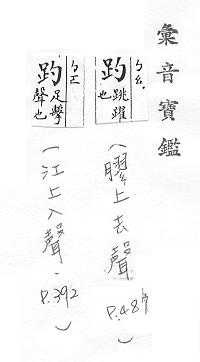 彙音寶鑑
趵 跳躍也
(膠上去聲
趵 足擊聲也
(江上入聲.
P.392)